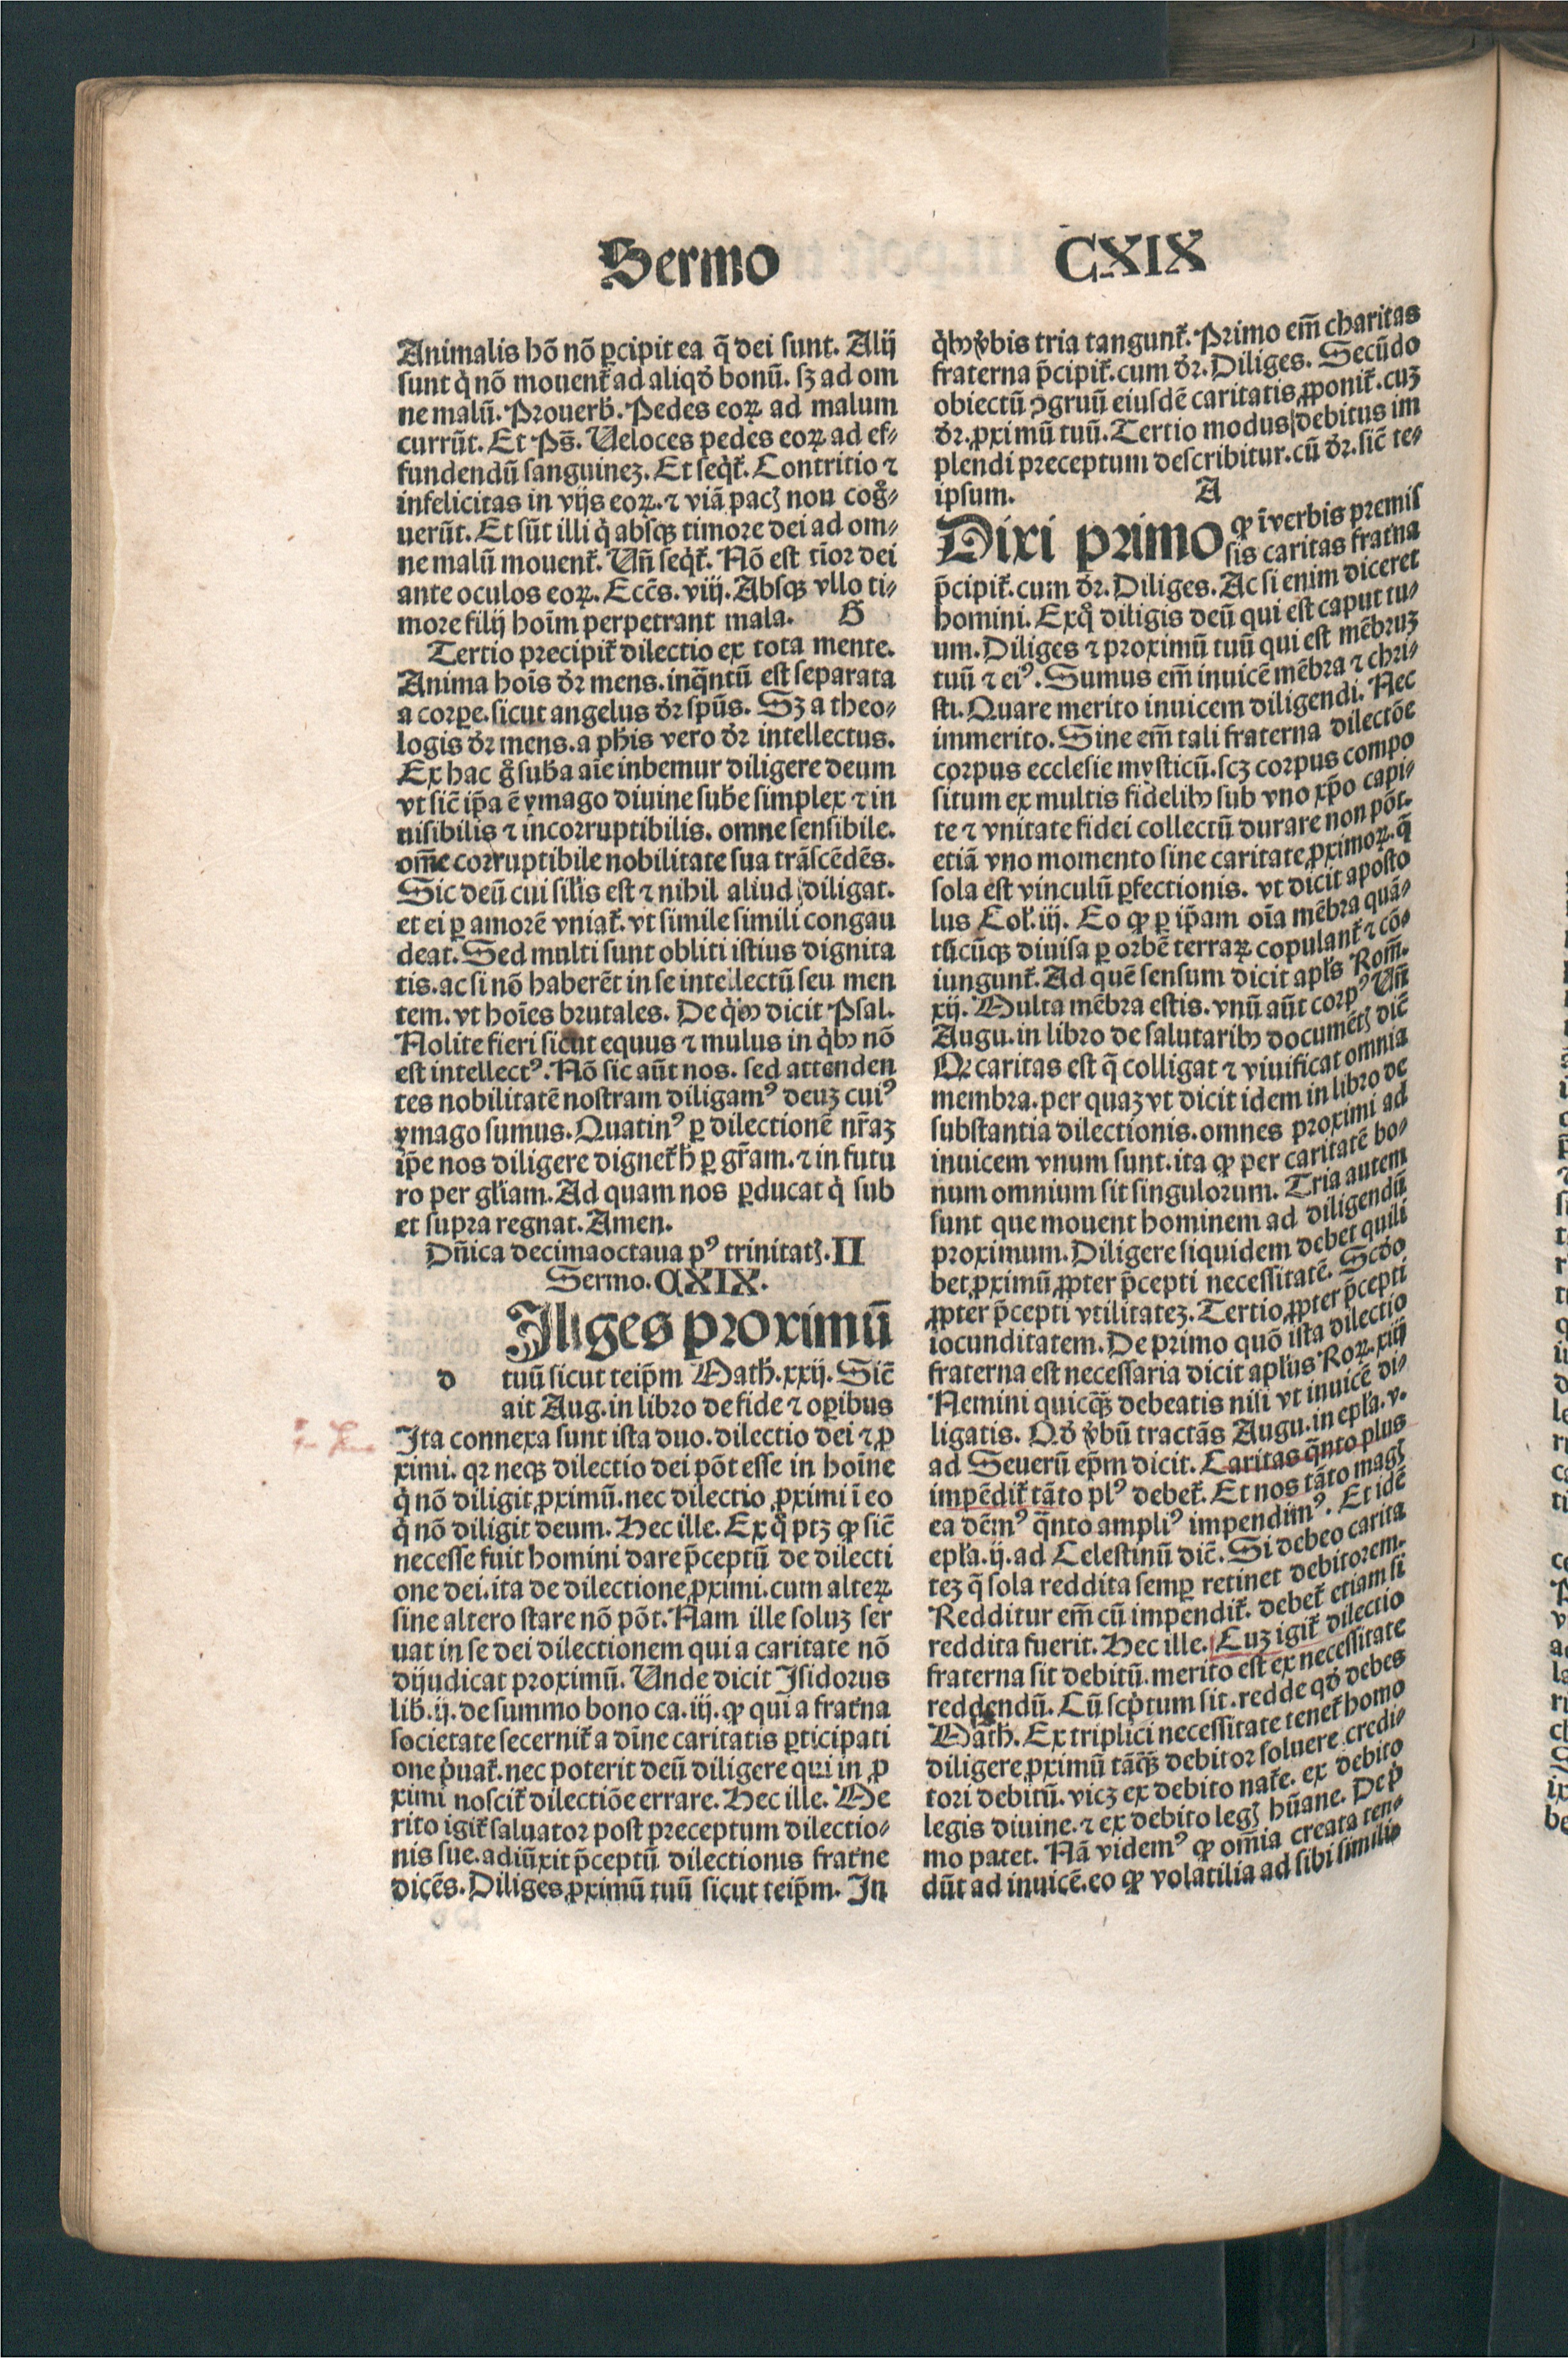 Sermo CXIX
Animalis hõ nõ ꝑcipit ea q̃ dei sunt. Alij
sunt q̇ nõ mouent̃ ad aliqd̾ bonũ. sꝫ ad om
ne malũ. Prouerb̾. Pedes eoꝝ ad malum
currũt. Et Ps̃. Ueloces pedes eoꝝ ad ef⸗
fundendũ sanguineꝫ. Et seq̇t̃. Contritio ⁊
infelicitas in vijs eoꝝ. ⁊ viã pacꝭ non cog̊⸗
uerũt. Et sũt illi q̇ absqꝫ timore dei ad om⸗
ne malũ mouent̃. Uñ seq̇t̃. Nõ est tĩor dei
ante oculos eoꝝ. Ecc̃s. viij. Absqꝫ vllo ti⸗
more filij hoĩm perpetrant mala. G
Tertio precipit̃ dilectio ex tota mente.
Anima hoĩs d̾r mens. inq̃ntũ est separata
a corꝑe. sicut angelus d̾r spũs. Sꝫ a theo⸗
logis d̾r mens. a pħis vero d̾r intellectus.
Ex hac g̊ sub̾a aĩe inbemur diligere deum
vt sic̃ ip̃a ẽ ymago diuine sub̾e simplex ⁊ in
uisibilis ⁊ incorruptibilis. omne sensibile.
om̃e corruptibile nobilitate sua trãscẽdẽs.
Sic deũ cui sil̾is est ⁊ nihil aliud diligat.
et ei ꝑ amorẽ vniat̃. vt simile simili congau
deat. Sed multi sunt obliti istius dignita
tis. ac si nõ haberẽt in se intellectũ seu men
tem. vt hoĩes brutales. De q̇bꝰ dicit Psal.
Nolite fieri sicut equus ⁊ mulus in q̇bꝰ nõ
est intellectꝰ. Nõ sic aũt nos. sed attenden
tes nobilitatẽ nostram diligamꝰ deuꝫ cuiꝰ
ymago sumus. Quatinꝰ ꝑ dilectionẽ nr̃aꝫ
ip̃e nos diligere dignet̃ h̾ ꝑ gr̃am. ⁊ in futu
ro per gl̾iam. Ad quam nos ꝑducat q̇ sub
et supra regnat. Amen.
Dñica decimaoctaua pꝰ trinitatꝭ. II
Sermo. CXIX.
Iliges proximũ
d tuũ sicut teip̃m Math̾. xxij. Sic̃
ait Aug. in libro de fide ⁊ oꝑibus
Ita connexa sunt ista duo. dilectio dei ⁊ ꝓ
ximi. qꝛ neqꝫ dilectio dei põt esse in hoĩne
q̇ nõ diligit ꝓximũ. nec dilectio ꝓximi ĩ eo
q̇ nõ diligit deum. Hec ille. Ex q̊ ptꝫ ꝙ sic̃
necesse fuit homini dare p̃ceptũ de dilecti
one dei. ita de dilectione ꝓximi. cum alteꝝ
sine altero stare nõ põt. Nam ille soluꝫ ser
uat in se dei dilectionem qui a caritate nõ
dijudicat proximũ. Unde dicit Isidorus
lib̾. ij. de summo bono ca. iij. ꝙ qui a frat̾na
societate secernit̃ a diũne caritatis ꝑticipati
one p̾uat̃. nec poterit deũ diligere qui in ꝓ
ximi noscit̃ dilectiõe errare. Hec ille. Me
rito igit̃ saluator post preceptum dilectio⸗
nis sue. adiũxit p̃ceptũ dilectionis frat̾ne
dicẽs. Diliges ꝓximũ tuũ sicut teip̃m. In
q̇bꝰ v̾bis tria tangunt̃. Primo em̃ charitas
fraterna p̃cipit̃. cum d̾r. Diliges. Secũdo
obiectũ ꝯgruũ eiusdẽ caritatis ꝓponit̃. cuꝫ
d̾r. ꝓximũ tuũ. Tertio modus debitus im
plendi preceptum describitur. cũ d̾r. sic̃ te⸗
ipsum. A
Dixi primo ꝙ ĩ verbis premis
sis caritas frat̾na
p̃cipit̃. cum d̾r. Diliges. Ac si enim diceret
homini. Ex q̊ diligis deũ qui est caput tu⸗
um. Diliges ⁊ proximũ tuũ qui est mẽbruꝫ
tuũ ⁊ eiꝰ. Sumus em̃ inuicẽ mẽbra ⁊ chri⸗
sti. Quare merito inuicem diligendi. Nec
immerito. Sine em̃ tali fraterna dilectõe
corpus ecclesie mysticũ. scꝫ corpus compo
situm ex multis fidelibꝰ sub vno xp̃o capi⸗
te ⁊ vnitate fidei collectũ durare non põt.
etiã vno momento sine caritate ꝓximoꝝ. q̃
sola est vinculũ ꝑfectionis. vt dicit aposto
lus Col̾. iij. Eo ꝙ ꝑ ip̃am oĩa mẽbra quã⸗
tũcũqꝫ diuisa ꝑ orbẽ terraꝝ copulant̃ ⁊ cõ⸗
iungunt̃. Ad quẽ sensum dicit apl̾s Rom̃.
xij. Multa mẽbra estis. vnũ aũt corpꝰ Uñ
Augu. in libro de salutaribꝰ documẽtꝭ dic̃
Qꝛ caritas est q̃ colligat ⁊ viuificat omnia
membra. per quaꝫ vt dicit idem in libro de
substantia dilectionis. omnes proximi ad
inuicem vnum sunt. ita ꝙ per caritatẽ bo⸗
num omnium sit singulorum. Tria autem
sunt que mouent hominem ad diligendũ
proximum. Diligere siquidem debet quili
bet ꝓximũ ꝓpter p̃cepti necessitatẽ. Scd̾o
ꝓpter p̃cepti vtilitateꝫ. Tertio ꝓpter p̃cepti
iocunditatem. De primo quõ ista dilectio
fraterna est necessaria dicit apl̾us Roꝝ. xiij
Nemini quicq̃ꝫ debeatis nisi vt inuicẽ di⸗
ligatis. Qd̾ v̾bũ tractãs Augu. in epl̾a. v.
ad Seuerũ ep̃m dicit. Caritas q̃nto plus
impẽdit̃ tãto plꝰ debet̃. Et nos tãto magꝭ
ea dẽmꝰ q̃nto ampliꝰ impendimꝰ. Et idẽ
epl̾a. ij. ad Celestinũ dic̃. Si debeo carita
teꝫ q̃ sola reddita semꝑ retinet debitorem.
Redditur em̃ cũ impendit̃. debet̃ etiam si
reddita fuerit. Hec ille. Cuꝫ igit̃ dilectio
fraterna sit debitũ. merito est ex necessitate
reddendũ. Cũ scp̾tum sit. redde qd̾ debes
Math̾. Ex triplici necessitate tenet̃ homo
diligere ꝓximũ tãq̃ꝫ debitor soluere credi⸗
tori debitũ. vicꝫ ex debito nat̃e. ex debito
legis diuine. ⁊ ex debito legꝭ hũane. De p̾
mo patet. Nã videmꝰ ꝙ om̃ia creata ten⸗
dũt ad inuicẽ. eo ꝙ volatilia ad sibi similia